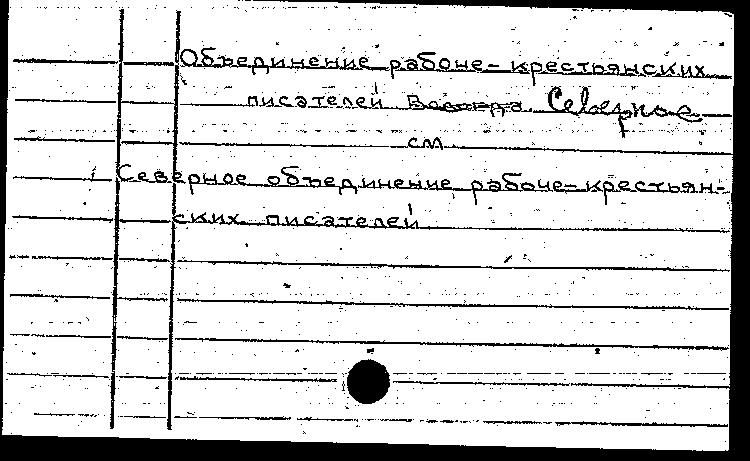 Объединение рабоче-крестьянских
писателей Северное
см
Северное объединение рабоче-крестьян-
ских писателей